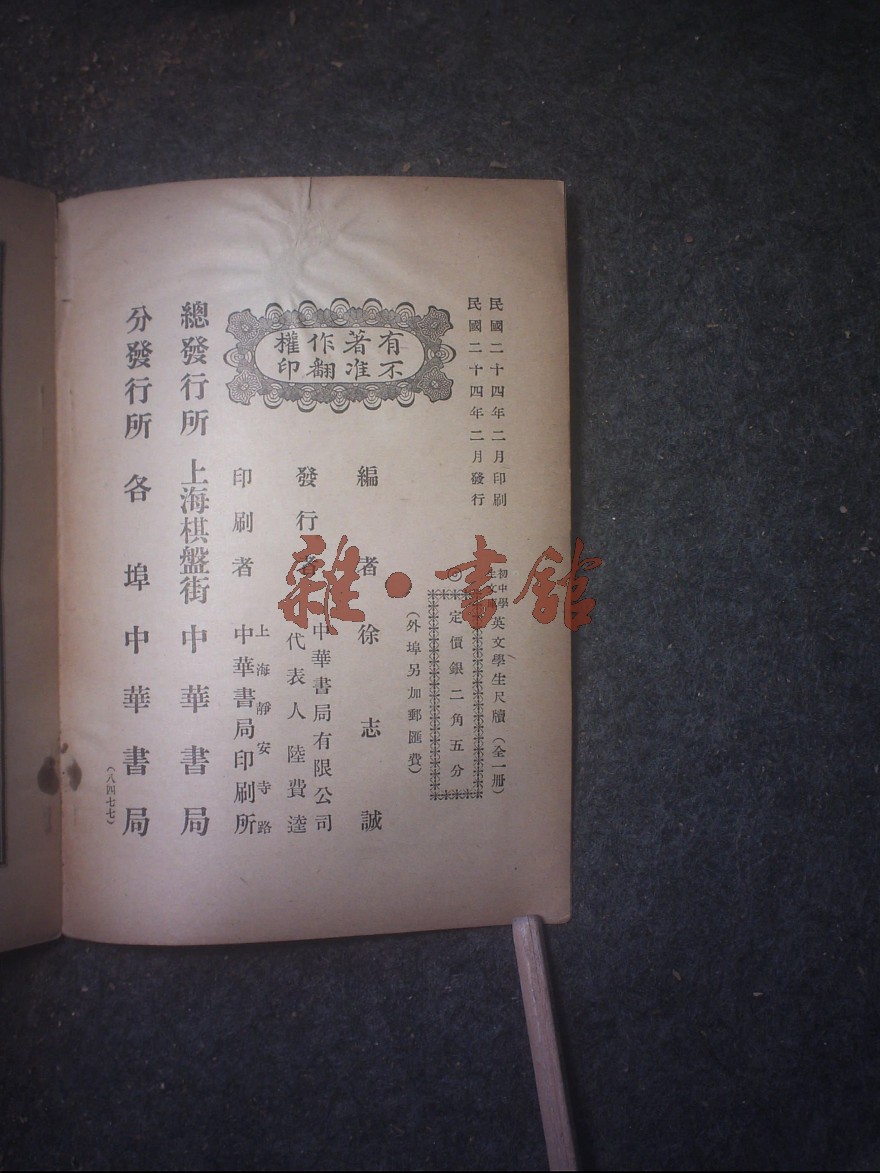 民國二十四年二月印刷
民國二十四年二月發行
有著作權
不准翻印
初中學
生文庫
英文學生尺牘(全一册)
◎定價銀二角五分
(外埠另加郵匯費)
編者徐志誠
發行者
中華書局有限公司
代表人陸費逵
印刷者
上海靜安寺路
中華書局印刷所
總發行所 上海棋盤街 中華書局
分發行所 各埠中華書局
(八四七七)
雜·書館